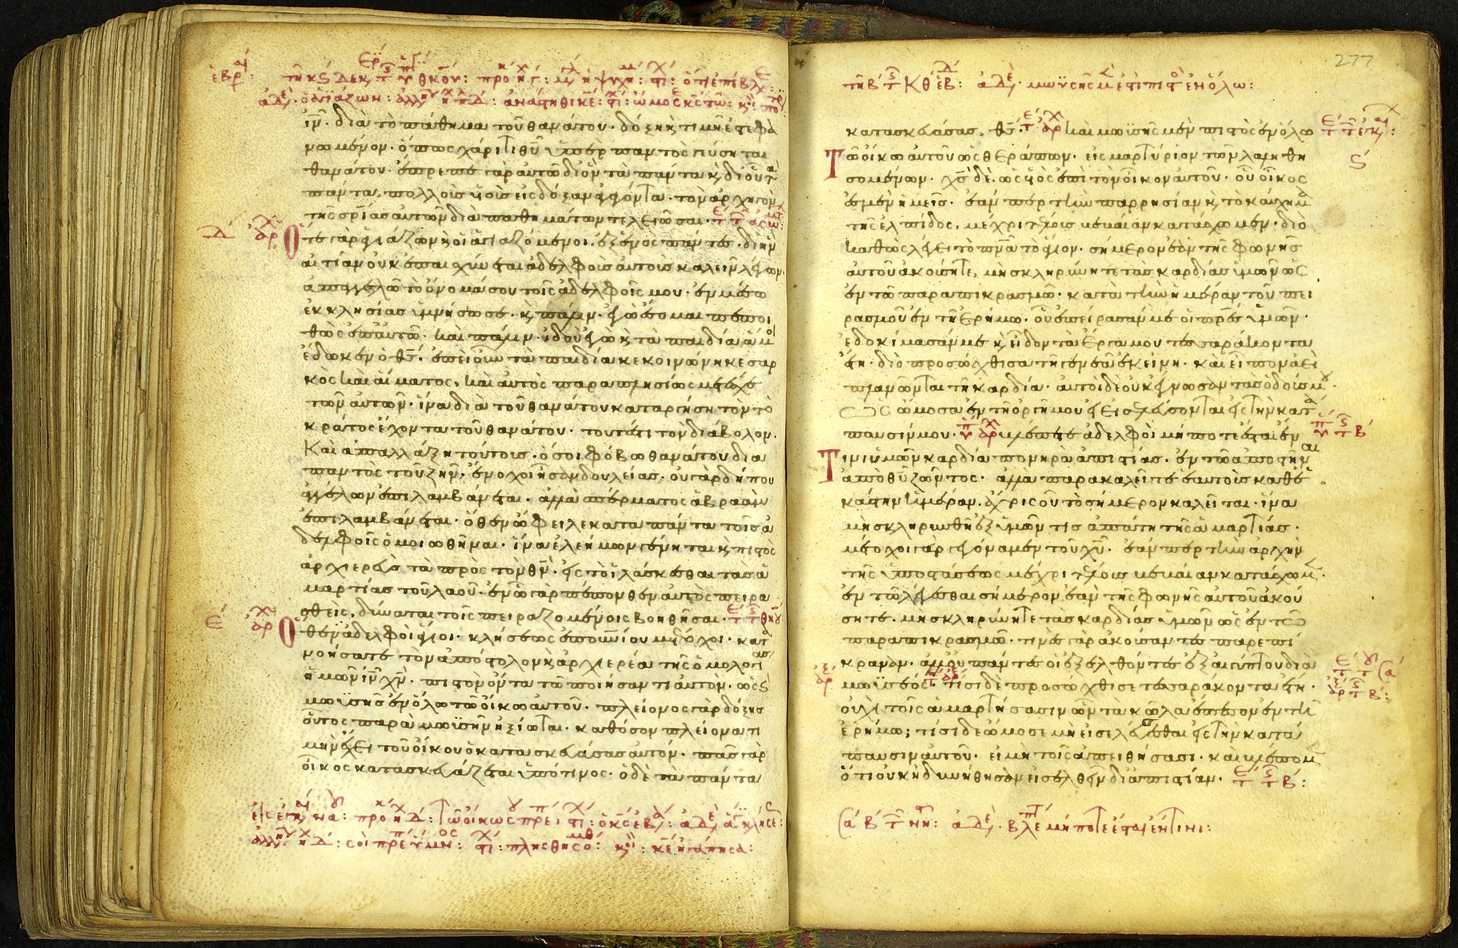 ἰν̅. διὰ τὸ πάθημα τοῦ θανάτου. δόξη κ̀ τιμῆ ἐστεφα
νωμένον. ὅπως χάριτι θυ̅ ὑπὲρ παντὸς γεύσηται
θανάτου. ἔπρεπε γὰρ αὐτῶ δι' ὃν τὰ πάντα κ̀ δι' οὗ τὰ
πάντα. πολλοὺς υἱοὺς εἰς δόξαν ἀγαγόντα. τὸν ἀρχηγὸν
τῆς σρ̅ίας αὐτῶν διὰ παθημάτων τελειῶσαι.
Δ ἀρχ Ὅ τε γὰρ ἁγιάζων κ̀ οἱ ἁγιαζόμενοι. ἐξ ἑνὸς πάντες. δι' ἣν
αἰτίαν οὐκ ἐπαισχύνεται ἀδελφοὺς αὐτοὺς καλεῖν λέγων.
ἀπαγγελῶ τὸ ὄνομά σου τοῖς ἀδελφοῖς μου. ἐν μέσω
ἐκκλησίας ὑμνήσω σε. κ̀ πάλιν. ἐγὼ ἔσομαι πεποι
θὼς ἐπ' αὐτῶ. καὶ πάλιν. ἰδοὺ ἐγὼ κ̀ τὰ παιδία ἅ μοι
ἔδωκεν ὁ θς̅. ἐπεὶ οὖν τὰ παιδία κεκοινώνηκε σαρ
κὸς καὶ αἵματος, καὶ αὐτὸς παραπλησίως μετέσχε
τῶν αὐτῶν. ἵνα διὰ τοῦ θανάτου καταργήση τὸν τὸ
κράτος ἔχοντα τοῦ θανάτου. τουτέστι τὸν διάβολον.
Καὶ ἀπαλλάξη τούτους. ὅσοι φόβω θανάτου δια
παντὸς τοῦ ζῆν. ἔνοχοι ἦσαν δουλείας. οὐ γὰρ δήπου
ἀγγέλων ἐπιλαμβάνεται. ἀλλὰ σπέρματος ἀβραὰμ
ἐπιλαμβάνεται. ὅθεν ὤφειλε κατὰ πάντα τοῖς ἀ
δελφοῖς ὁμοιωθῆναι. ἵνα ἐλεήμων γένηται κ̀ πιστὸς
ἀρχιερεὺς τὰ πρὸς τὸν θν̅. εἰς τὸ ἱλάσκεσθαι τὰς ἁ
μαρτίας τοῦ λαοῦ. ἐν ὧ γὰρ πέπονθεν αὐτὸς πειρα
σθεὶς, δύναται τοῖς πειραζομένοις βοηθῆσαι.
Ε ἀρχ Ὅθεν ἀδελφοὶ ἅγιοι. κλήσεως ἐπουνίου μέτοχοι. κατα
νοήσατε τὸν ἀπόστολον κ̀ ἀρχιερέα τῆς ὁμολογίας
ἡμῶν ἰν̅ χν̅. πιστὸν ὄντα τῶ ποιήσαντι αὐτόν. ὡς κ̀
μωϋσῆς ἐν ὅλω τῶ οἴκω αὐτοῦ. πλείονος γὰρ δόξης
οὗτος παρὰ μωϋσῆν ἠξίωται. καθόσον πλείονα τι
μὴν ἔχει τοῦ οἴκου ὁ κατασκευάσας αὐτόν. πᾶς γὰρ
οἶκος κατασκευάζεται ὑπό τινος. ὁ δὲ τὰ πάντα
277
κατασκευάσας. θς̅. καὶ μωϋσῆς μὲν πιστὸς ἐν ὅλω
τῶ οἴκω αὐτοῦ ὡς θεράπων. εἰς μαρτύριον τῶν λαληθη
σομένων. χς̅ δὲ ὡς υἱὸς ἐπὶ τὸν οἶκον αὐτοῦ. οὗ οἶκος
ἐσμὲν ἡμεῖς. ἐάνπερ τὴν παρρησίαν κ̀ τὸ καύχημα
τῆς ἐλπίδος, μέχρι τέλους βεβαίαν κατάσχωμεν. διὸ
καθὼς λέγει τὸ πνα̅ τὸ ἅγιον. σήμερον ἐὰν τῆς φωνῆς
αὐτοῦ ἀκούσητε, μὴ σκληρύνητε τὰς καρδίας ὑμῶν ὡς
ἐν τῶ παραπικρασμῶ. κατὰ τὴν ἡμέραν τοῦ πει
ρασμοῦ ἐν τῆ ἐρήμω. οὗ ἐπείρασάν με οἱ πρες̅ ὑμῶν.
ἐδοκίμασάν με κ̀ εἶδον τὰ ἔργα μου τεσσαράκοντα
ἔτη. διὸ προσώχθισα τῆ γενεᾶ ἐκείνη. καὶ εἶπον ἀεὶ
πλανῶνται τῆ καρδία. αὐτοὶ δὲ οὐκ ἔγνωσαν τὰς ὁδούς μου.
ὡς ὤμοσα ἐν τῆ ὀργῆ μου εἰ εἰσελεύσονται εἰς τὴν κατά
παυσίν μου. βλέπετε ἀδελφοὶ μήποτε ἔσται ἔν
Τινι ὑμῶν καρδία πονηρὰ ἀπιστίας. ἐν τῶ ἀποστῆναι
ἀπὸ θυ̅ ζῶντος. ἀλλὰ παρακαλεῖτε ἑαυτοὺς καθ' ἑ
κάστην ἡμέραν. ἄχρις οὗ τὸ σήμερον καλεῖται. ἵνα
μὴ σκληρυνθῆ ἐξ ὑμῶν τις ἀπάτη τῆς ἁμαρτίας.
μέτοχοι γὰρ γεγόναμεν τοῦ χυ̅. ἐάνπερ τὴν ἀρχὴν
τῆς ὑποστάσεως μέχρι τέλους βεβαίαν κατάσχωμεν.
ἐν τῶ λέγεσθαι σήμερον ἐὰν τῆς φωνῆς αὐτοῦ ἀκού
σητε. μὴ σκληρύνητε τὰς καρδίας ὑμῶν ὡς ἐν τῶ
παραπικρασμῶ. τινὲς γὰρ ἀκούσαντες παρεπί
κραναν. ἀλλ' οὐ πάντες οἱ ἐξελθόντες ἐξ αἰγύπτου διὰ
μωϋσέως. τίσι δὲ προσώχθισε τεσσαράκοντα ἔτη.
οὐχὶ τοῖς ἁμαρτήσασιν ὧν τὰ κῶλα ἔπεσον ἐν τῆ
ἐρήμω; τίσι δὲ ὤμοσε μὴ εἰσελεύσεσθαι εἰς τὴν κατά
παυσιν αὐτοῦ. εἰ μὴ τοῖς ἀπειθήσασι. καὶ βλέπομεν
ὅτι οὐκ ἠδυνήθησαν εἰσελθεῖν δι' ἀπιστίαν.